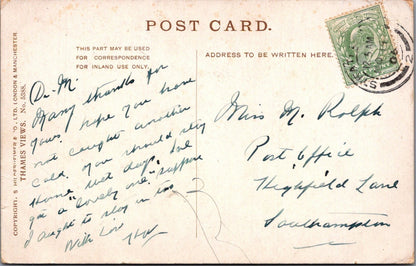 POST CARD.
THIS PART MAY BE USED
FOR CORRESPONDENCE
FOR INLAND USE ONLY.
ADDRESS TO BE WRITTEN HERE.
COPYRIGHT, S & CO. LTD. LONDON & MANCHESTER
THAMES VIEWS No. 5388.
Dr. M.
Many thanks for
yours. hope you have
not caught another
cold. You should stay
Home wet days. I've
got a "lovely one" suppose
I ought to stay in too
With Love
Miss M. Rolph
Post Office
Highfield Lane
Southampton